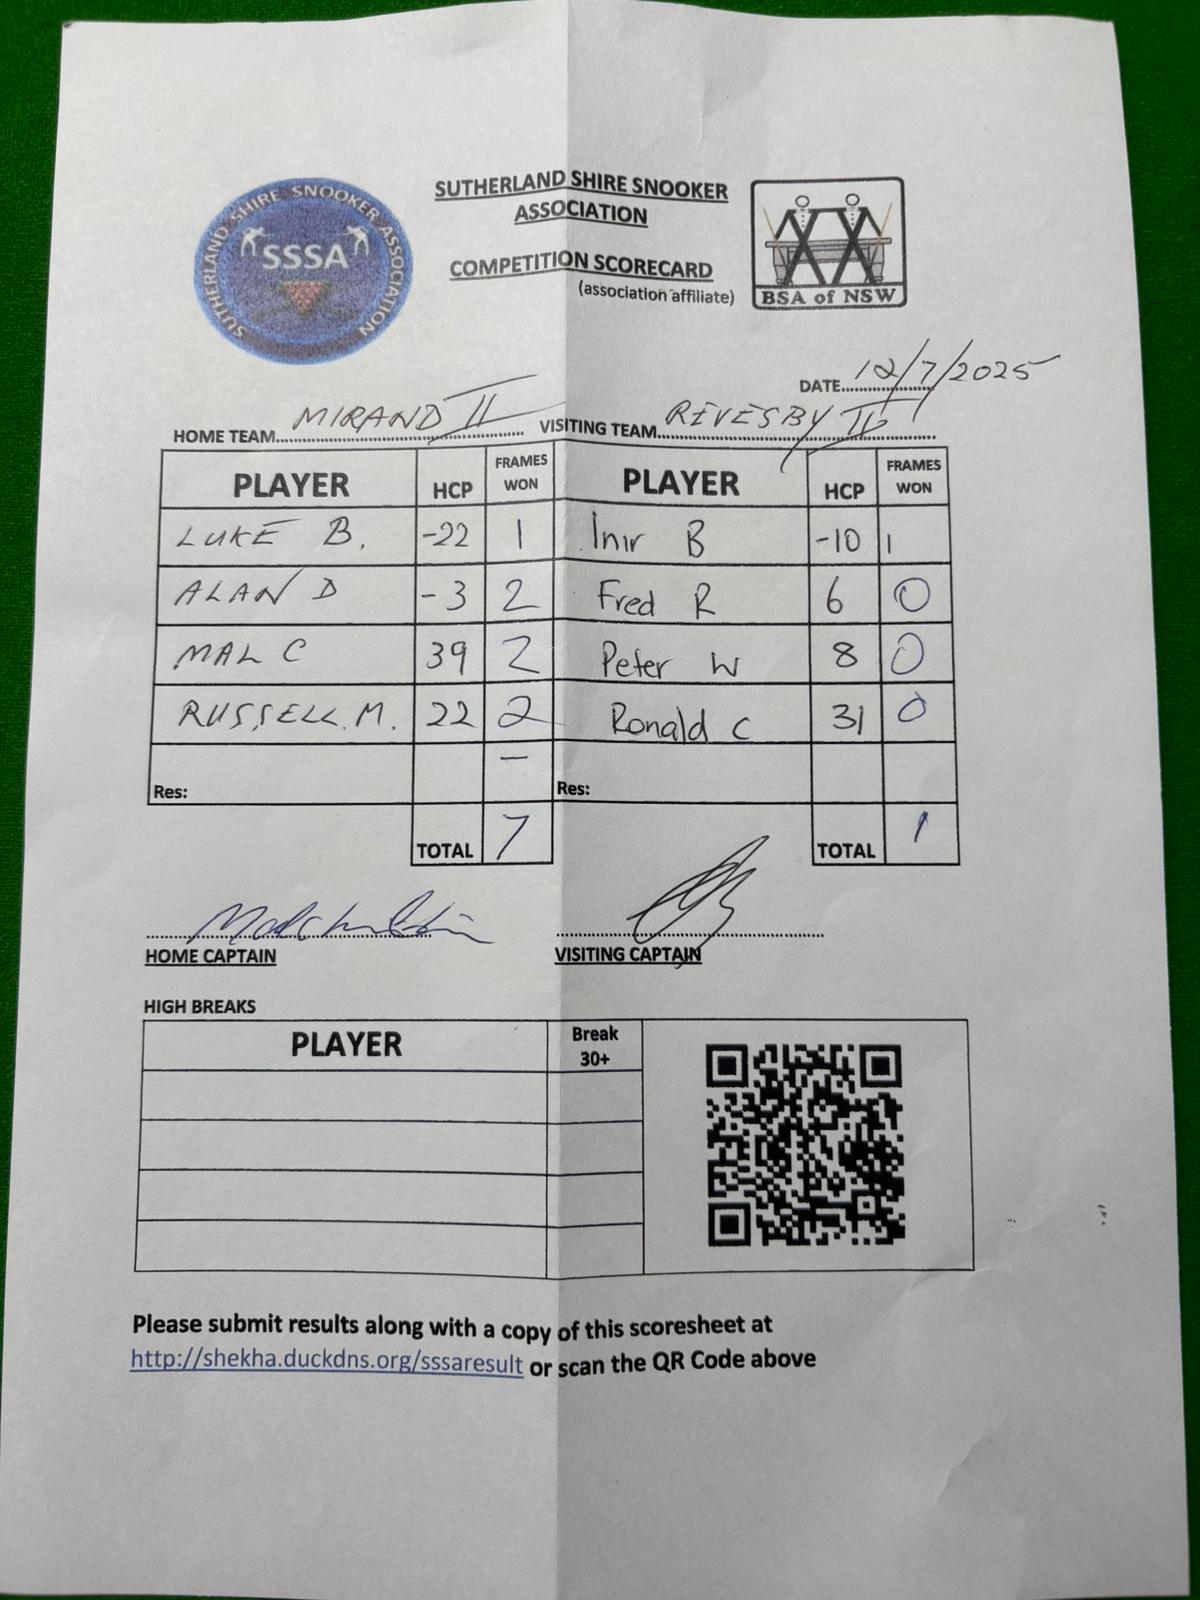 SUTHERLAND SHIRE SNOOKER ASSOCIATION
SSSA
SUTHERLAND SHIRE SNOOKER
ASSOCIATION
COMPETITION SCORECARD
(association affiliate)
BSA of NSW
DATE 12/7/2025
HOME TEAM MIRAND II VISITING TEAM REVESBY II
PLAYER HCP FRAMES WON PLAYER HCP FRAMES WON
LUKE B. -22 1 Inir B -10 1
ALAN D -3 2 Fred R 6 0
MAL C 39 2 Peter W 8 0
RUSSELL M. 22 2 Ronald C 31 0
Res: - Res:
TOTAL 7 TOTAL 1
HOME CAPTAIN VISITING CAPTAIN
HIGH BREAKS
PLAYER Break 30+
Please submit results along with a copy of this scoresheet at
http://shekha.duckdns.org/sssaresult or scan the QR Code above